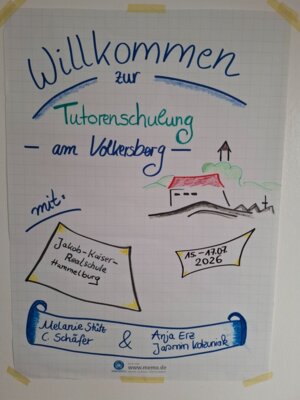 Willkommen
zur
Tutorenschulung
- am Volkersberg -
mit:
Jakob-Kaiser-
Realschule
Hammelburg
15.-17.07
2026
Melanie
C. Schäfer
&
Anja Erz
Jasmin
www.memo.de